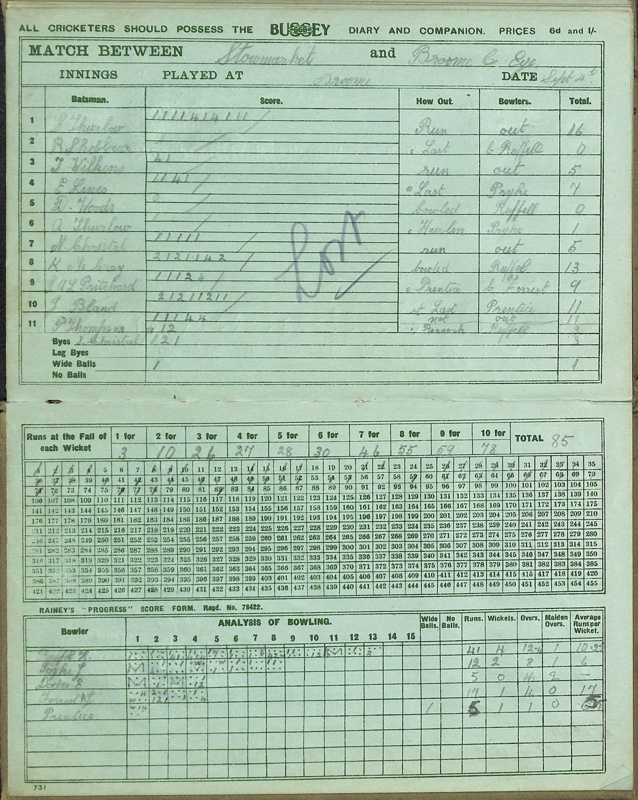 ALL CRICKETERS SHOULD POSSESS THE BUSSEY DIARY AND COMPANION. PRICES 6d and 1/-
MATCH BETWEEN Stowmarket and Broome C. Esq.
INNINGS PLAYED AT Broome DATE Sept 4th
Batsman. Score. How Out. Bowlers. Total.
1 S Thurlow 1111414111 Run out 16
2 c Last b Ruffell 0
3 T Wilkens 41 run out 5
4 E Lines 1141 c Last Pryke 7
5 D. Woods 0 bowled Ruffell 0
6 A Thurlow 1 c Hamlin Pryke 1
7 N. Christal 11111 run out 5
8 K Mc Cray 2121142 bowled Ruffell 13
9 Pritchard 11124 c Prentice b Forrest 9
10 J Bland 21211211 Prentice 11
11 P Thompson 11144 not out 11
Byes S. Christal 12 c Peacock Ruffell 3
121 3
Leg Byes
Wide Balls 1 1
No Balls
Lost
Runs at the Fall of each Wicket 1 for 2 for 3 for 4 for 5 for 6 for 7 for 8 for 9 for 10 for TOTAL 85
3 10 26 27 28 30 46 55 59 78
1 2 3 4 5 6 7 8 9 10 11 12 13 14 15 16 17 18 19 20 21 22 23 24 25 26 27 28 29 30 31 32 33 34 35
36 37 38 39 40 41 42 43 44 45 46 47 48 49 50 51 52 53 54 55 56 57 58 59 60 61 62 63 64 65 66 67 68 69 70
71 72 73 74 75 76 77 78 79 80 81 82 83 84 85 86 87 88 89 90 91 92 93 94 95 96 97 98 99 100 101 102 103 104 105
106 107 108 109 110 111 112 113 114 115 116 117 118 119 120 121 122 123 124 125 126 127 128 129 130 131 132 133 134 135 136 137 138 139 140
141 142 143 144 145 146 147 148 149 150 151 152 153 154 155 156 157 158 159 160 161 162 163 164 165 166 167 168 169 170 171 172 173 174 175
176 177 178 179 180 181 182 183 184 185 186 187 188 189 190 191 192 193 194 195 196 197 198 199 200 201 202 203 204 205 206 207 208 209 210
211 212 213 214 215 216 217 218 219 220 221 222 223 224 225 226 227 228 229 230 231 232 233 234 235 236 237 238 239 240 241 242 243 244 245
246 247 248 249 250 251 252 253 254 255 256 257 258 259 260 261 262 263 264 265 266 267 268 269 270 271 272 273 274 275 276 277 278 279 280
281 282 283 284 285 286 287 288 289 290 291 292 293 294 295 296 297 298 299 300 301 302 303 304 305 306 307 308 309 310 311 312 313 314 315
316 317 318 319 320 321 322 323 324 325 326 327 328 329 330 331 332 333 334 335 336 337 338 339 340 341 342 343 344 345 346 347 348 349 350
351 352 353 354 355 356 357 358 359 360 361 362 363 364 365 366 367 368 369 370 371 372 373 374 375 376 377 378 379 380 381 382 383 384 385
386 387 388 389 390 391 392 393 394 395 396 397 398 399 400 401 402 403 404 405 406 407 408 409 410 411 412 413 414 415 416 417 418 419 420
421 422 423 424 425 426 427 428 429 430 431 432 433 434 435 436 437 438 439 440 441 442 443 444 445 446 447 448 449 450 451 452 453 454 455
RAINEY'S "PROGRESS" SCORE FORM. Regd. No. 78422.
Bowler ANALYSIS OF BOWLING. Wide Balls. No Balls. Runs. Wickets. Overs. Maiden Overs. Average Runs per Wicket.
1 2 3 4 5 6 7 8 9 10 11 12 13 14 15
41 4 12.4 1 10.25
12 2 8 1 6
5 0 4 2 -
17 1 4 0 17
Prentice 1 5 1 1 0 5
731